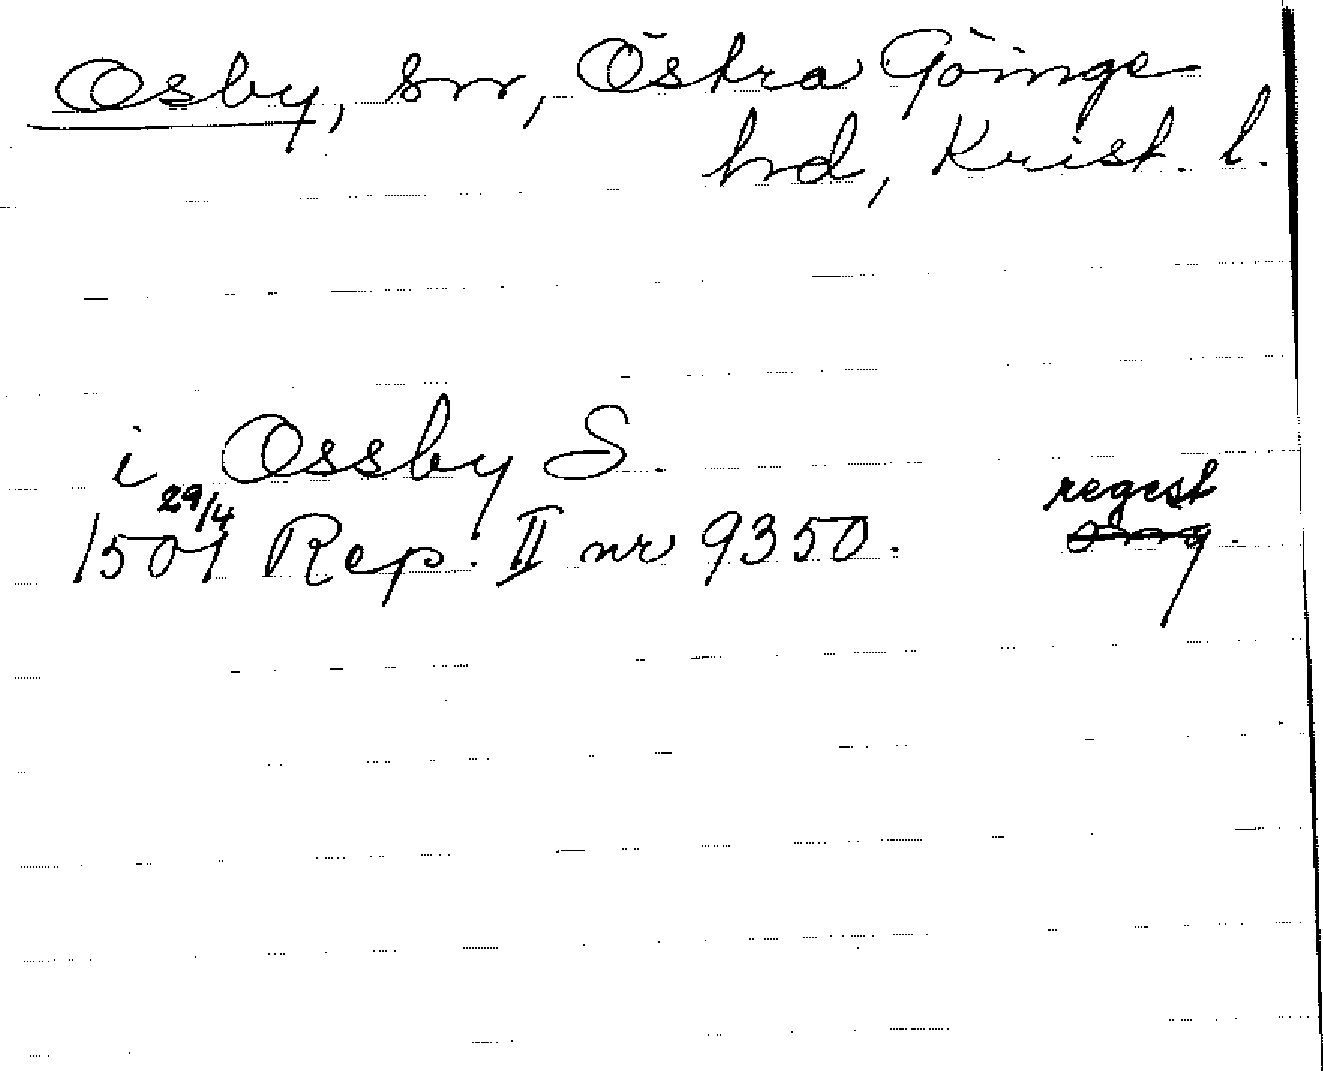 Osby, sn, Östra Göinge
hd, Krist. l.
i Ossby S.
regest
29/4
1501 Rep. II nr 9350.